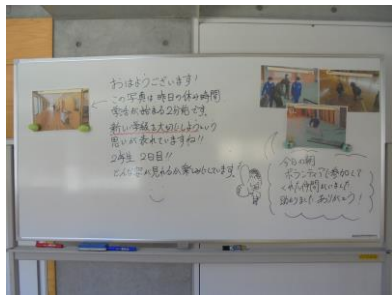 おはようございます！
この写真は昨日の休み時間
学活が始まる2分前です。
新しい学級を大切にしようという
思いが表れていますね!!
2年生 2日目!!
どんな姿が見れるか楽しみにしています。
今日の朝
ボランティアで参加して
くれた仲間がいました
ありがとう！